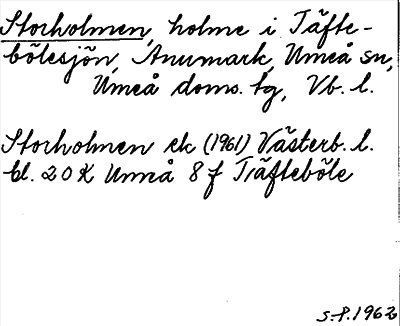 Storholmen, holme i Täfte-
bölesjön, Anumark, Umeå sn,
Umeå doms. tg, Vb. l.
Storholmen ek (1961) Västerb. l.
bl. 20 K Umeå 8 f Täfteböle
S.P. 1962